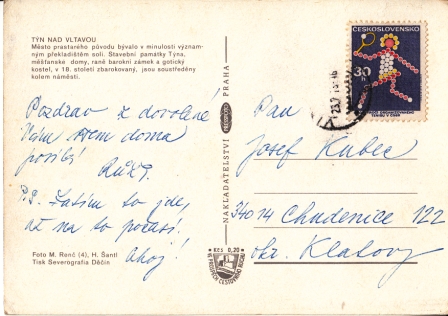 TÝN NAD VLTAVOU
Město prastarého původu bývalo v minulosti význam-
ným překladištěm soli. Stavební památky Týna,
měšťanské domy, raně barokní zámek a gotický
kostel, v 19. století zbarokovaný, jsou soustředěny
kolem náměstí.
Pozdrav z dovolené
Vám všem doma
posílá
P.S. Zatím to jde,
až na to počasí.
Ahoj!
Foto M. Renč (4), H. Šantl
Tisk Severografia Děčín
NAKLADATELSTVÍ
PRAHA
Kčs 0,20
ČESKOSLOVENSKO
30
Pan
Josef Kubec
34014 Chudenice 122
okr. Klatovy